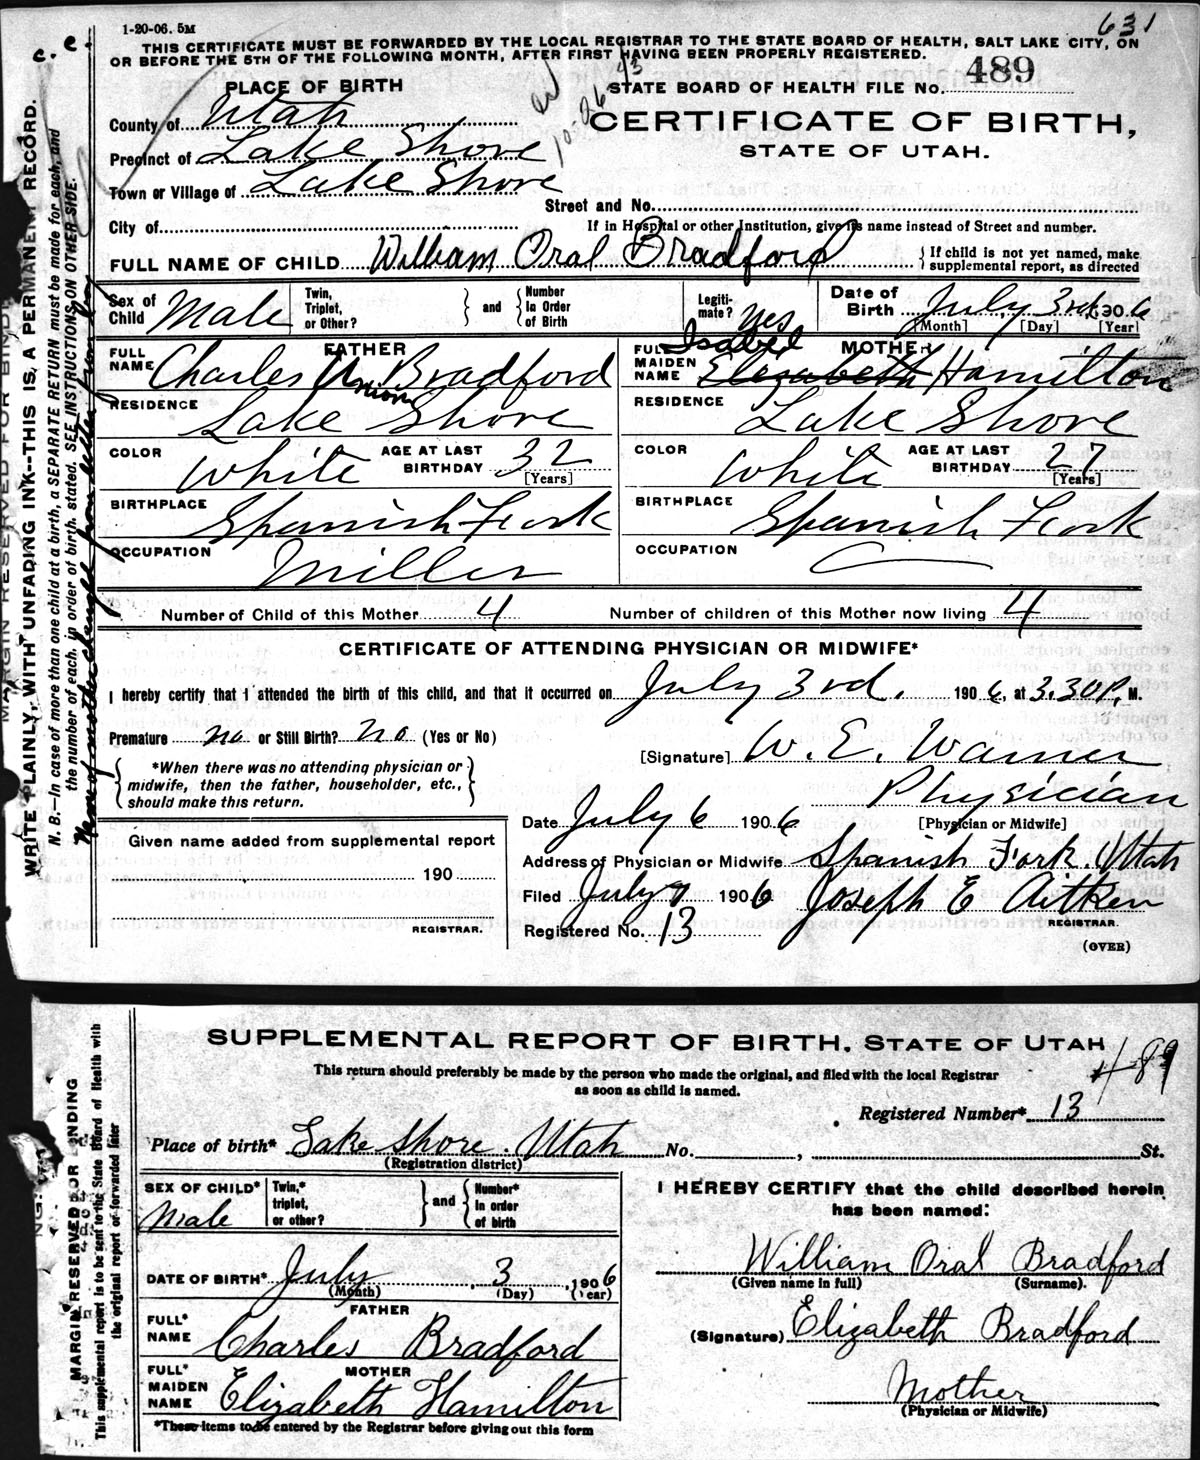 1-20-06. 5M
631
c. c.
THIS CERTIFICATE MUST BE FORWARDED BY THE LOCAL REGISTRAR TO THE STATE BOARD OF HEALTH, SALT LAKE CITY, ON
OR BEFORE THE 5TH OF THE FOLLOWING MONTH, AFTER FIRST HAVING BEEN PROPERLY REGISTERED.
PLACE OF BIRTH
STATE BOARD OF HEALTH FILE No. 489
County of Utah
CERTIFICATE OF BIRTH,
Precinct of Lake Shore
STATE OF UTAH.
Town or Village of Lake Shore
Street and No.
City of
If in Hospital or other Institution, give its name instead of Street and number.
FULL NAME OF CHILD William Oral Bradford
{ If child is not yet named, make
supplemental report, as directed
Sex of Child Male
Twin, Triplet, or Other?
and
Number In Order of Birth
Legiti-mate? Yes
Date of Birth July 3rd, 1906
[Month] [Day] [Year]
FATHER
FULL NAME Charles Union Bradford
MOTHER
FULL MAIDEN NAME Isabel Elizabeth Hamilton
RESIDENCE Lake Shore
RESIDENCE Lake Shore
COLOR White AGE AT LAST BIRTHDAY 32 [Years]
COLOR White AGE AT LAST BIRTHDAY 27 [Years]
BIRTHPLACE Spanish Fork
BIRTHPLACE Spanish Fork
OCCUPATION Miller
OCCUPATION
Number of Child of this Mother 4 Number of children of this Mother now living 4
CERTIFICATE OF ATTENDING PHYSICIAN OR MIDWIFE*
I hereby certify that I attended the birth of this child, and that it occurred on July 3rd, 1906, at 3.30 P. M.
Premature no or Still Birth? no (Yes or No)
[Signature] W. E. Warner
*When there was no attending physician or
midwife, then the father, householder, etc.,
should make this return.
Physician
[Physician or Midwife]
Date July 6 1906
Given name added from supplemental report
190
REGISTRAR.
Address of Physician or Midwife Spanish Fork, Utah
Filed July 7 1906 Joseph E Aitken
REGISTRAR.
Registered No. 13
(OVER)
MARGIN RESERVED FOR BINDI
WRITE PLAINLY, WITH UNFADING INK--THIS IS A PERMANENT RECORD.
N. B.—In case of more than one child at a birth, a SEPARATE RETURN must be made for each, and
the number of each, in order of birth, stated. SEE INSTRUCTIONS ON OTHER SIDE.
Name of mother changed from letter from
SUPPLEMENTAL REPORT OF BIRTH, STATE OF UTAH
489
This return should preferably be made by the person who made the original, and filed with the local Registrar
as soon as child is named.
Registered Number* 13
Place of birth* Lake Shore. Utah No. , St.
(Registration district)
SEX OF CHILD* Male
Twin,* triplet, or other?
and
Number* In order of birth
I HEREBY CERTIFY that the child described herein
has been named:
William Oral Bradford
(Given name in full) (Surname).
DATE OF BIRTH* July 3, 1906
(Month) (Day) (Year)
FATHER
FULL* NAME Charles Bradford
(Signature) Elizabeth Bradford
MOTHER
FULL* MAIDEN NAME Elizabeth Hamilton
Mother
(Physician or Midwife)
*These items to be entered by the Registrar before giving out this form
MARGIN RESERVED FOR INDING
This supplemental report is to be sent to the State Board of Health with
the original report or forwarded later